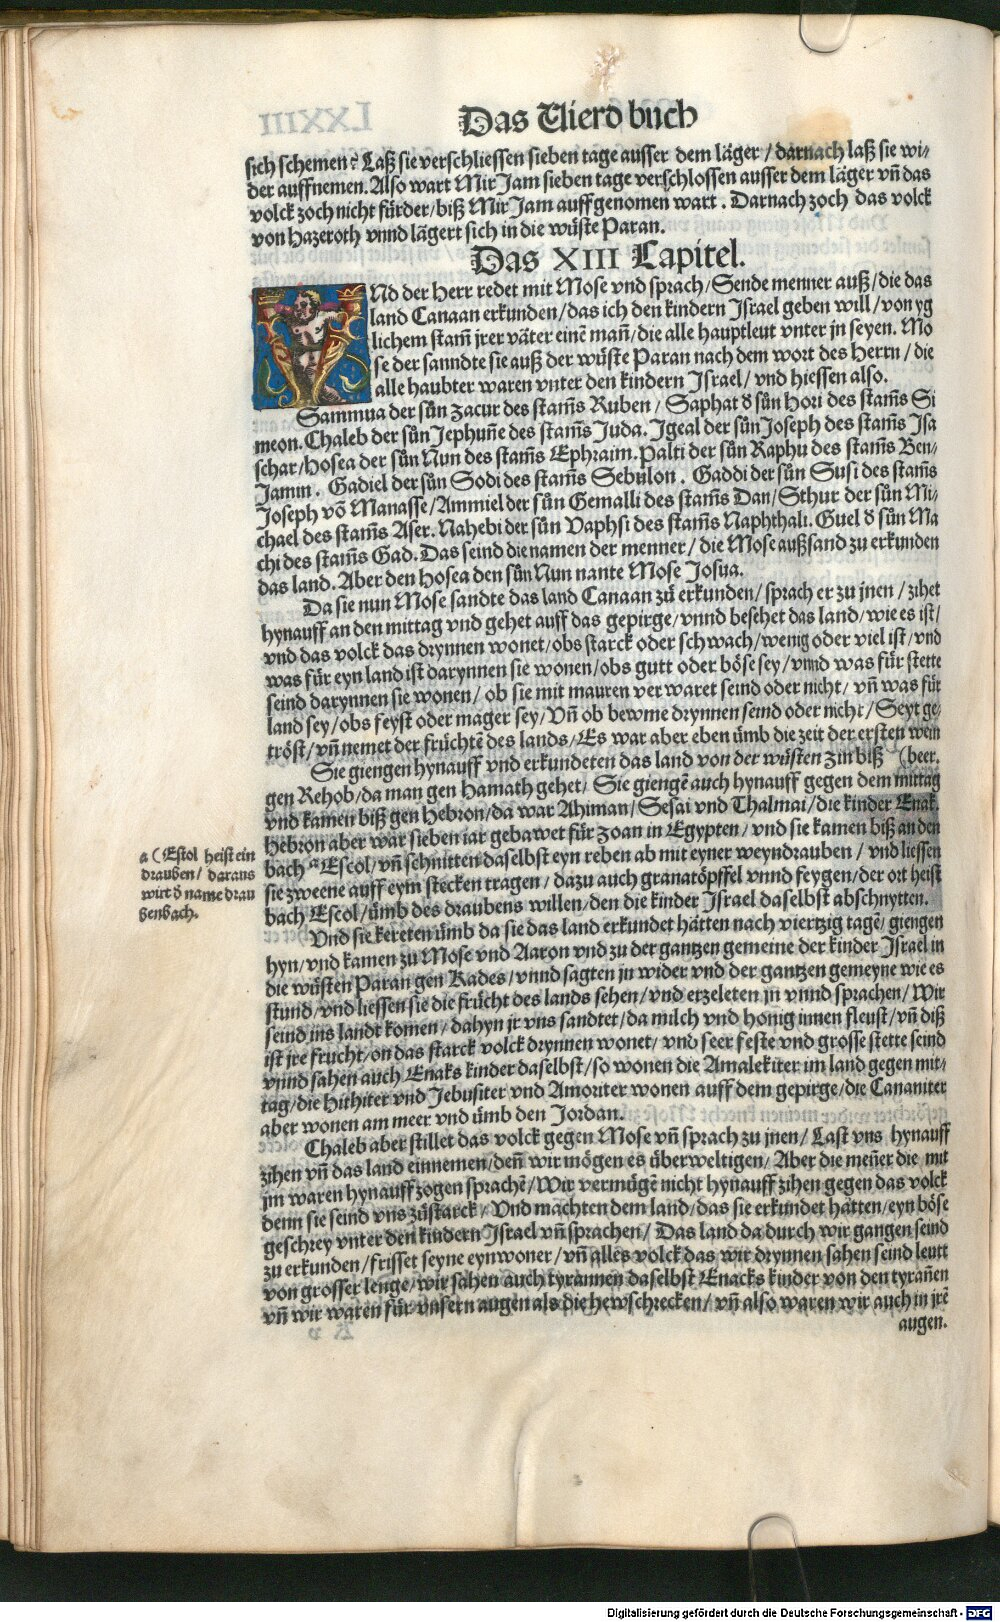 Das Vierd buch
sich schemen? Laß sie verschliessen sieben tage ausser dem läger / darnach laß sie wi/
der auffnemen. Also wart MirJam sieben tage verschlossen ausser dem läger vñ das
volck zoch nicht fürder / biß MirJam auffgenomen wart. Darnach zoch das volck
von Hazeroth vnnd lägert sich in die wüste Paran.
Das XIII Capitel.
VNd der Herr redet mit Mose vnd sprach / Sende menner auß / die das
land Canaan erkunden / das ich den kindern Jsrael geben will / von yg
lichem stam̃ jrer väter einẽ man̄ / die alle hauptleut vnter jn seyen. Mo
se der sanndte sie auß der wüste Paran nach dem wort des Herrn / die
alle haubter waren vnter den kindern Jsrael / vnd hiessen also.
Sammua der sůn Zacur des stam̃s Ruben / Saphat ď sůn Hori des stam̃s Si
meon. Chaleb der sůn Jephun̄e des stam̃s Juda. Jgeal der sůn Joseph des stam̃s Jsa
schar / Hosea der sůn Nun des stam̃s Ephraim. Palti der sůn Raphu des stam̃s Ben/
Jamin. Gadiel der sůn Sodi des stam̃s Sebulon. Gaddi der sůn Susi des stam̃s
Joseph võ Manasse / Ammiel der sůn Gemalli des stam̃s Dan / Sthur der sůn Mi/
chael des stam̃s Aser. Nahebi der sůn Vaphsi des stam̃s Naphthali. Guel ď sůn Ma
chi des stam̃s Gad. Das seind die namen der menner / die Mose außsand zu erkunden
das land. Aber den Hosea den sůn Nun nante Mose Josua.
Da sie nun Mose sandte das land Canaan zů erkunden / sprach er zu jnen / zihet
hynauff an den mittag vnd gehet auff das gepirge / vnnd besehet das land / wie es ist /
vnd das volck das drynnen wonet / obs starck oder schwach / wenig oder viel ist / vnd
was für eyn land ist darynnen sie wonen / obs gutt oder böse sey / vnnd was für stette
seind darynnen sie wonen / ob sie mit mauren verwaret seind oder nicht / vñ was für
land sey / obs feyst oder mager sey / Vñ ob bewme drynnen seind oder nicht / Seyt ge/
tröst / vñ nemet der früchtẽ des lands / Es war aber eben ümb die zeit der ersten wein
Sie giengen hynauff vnd erkundeten das land von der wüsten Zin biß (beer.
gen Rehob / da man gen Hamath gehet / Sie giengẽ auch hynauff gegen dem mittag
vnd kamen biß gen Hebron / da war Ahiman / Sesai vnd Thalmai / die kinder Enak.
Hebron aber war sieben iar gebawet für Zoan in Egypten / vnd sie kamen biß an den
bach ᵃ Escol / vñ schnitten daselbst eyn reben ab mit eyner weyndrauben / vnd liessen
sie zweene auff eym stecken tragen / dazu auch granatöpffel vnnd feygen / der ort heist
bach Escol / ümb des draubens willen / den die kinder Jsrael daselbst abschnytten.
a (Escol heist ein
drauben / daraus
wirt ď name drau
benbach.
Vnd sie kereten ümb da sie das land erkundet hätten nach viertzig tagẽ / giengen
hyn / vnd kamen zu Mose vnd Aaron vnd zu der gantzen gemeine der kinder Jsrael in
die wüsten Paran gen Kades / vnnd sagten jn wider vnd der gantzen gemeyne wie es
stund / vnd liessen sie die frücht des lands sehen / vnd erzeleten jn vnnd sprachen / Wir
seind ins landt komen / dahyn jr vns sandtet / da milch vnd honig innen fleust / vñ diß
ist jre frucht / on das starck volck drynnen wonet / vnd seer feste vnd grosse stette seind
vnnd sahen auch Enaks kinder daselbst / so wonen die Amalekiter im land gegen mit/
tag / die Hithiter vnd Jebusiter vnd Amoriter wonen auff dem gepirge / die Cananiter
aber wonen am meer vnd ümb den Jordan.
Chaleb aber stillet das volck gegen Mose vñ sprach zu jnen / Last vns hynauff
zihen vñ das land einnemen / den̄ wir mögen es überweltigen / Aber die men̄er die mit
jm waren hynauff zogen sprachẽ / Wir vermügẽ nicht hynauff zihen gegen das volck
denn sie seind vns zůstarck / Vnd machten dem land / das sie erkundet hätten / eyn böse
geschrey vnter den kindern Jsrael vñ sprachen / Das land da durch wir gangen seind
zu erkunden / frisset seyne eynwoner / vñ alles volck das wir drynnen sahen seind leutt
von grosser lenge / wir sahen auch tyrannen daselbst Enacks kinder von den tyran̄en
vñ wir waren für vnsern augen als die hewschrecken / vñ also waren wir auch in jrẽ
augen.
Digitalisierung gefördert durch die Deutsche Forschungsgemeinschaft - DFG